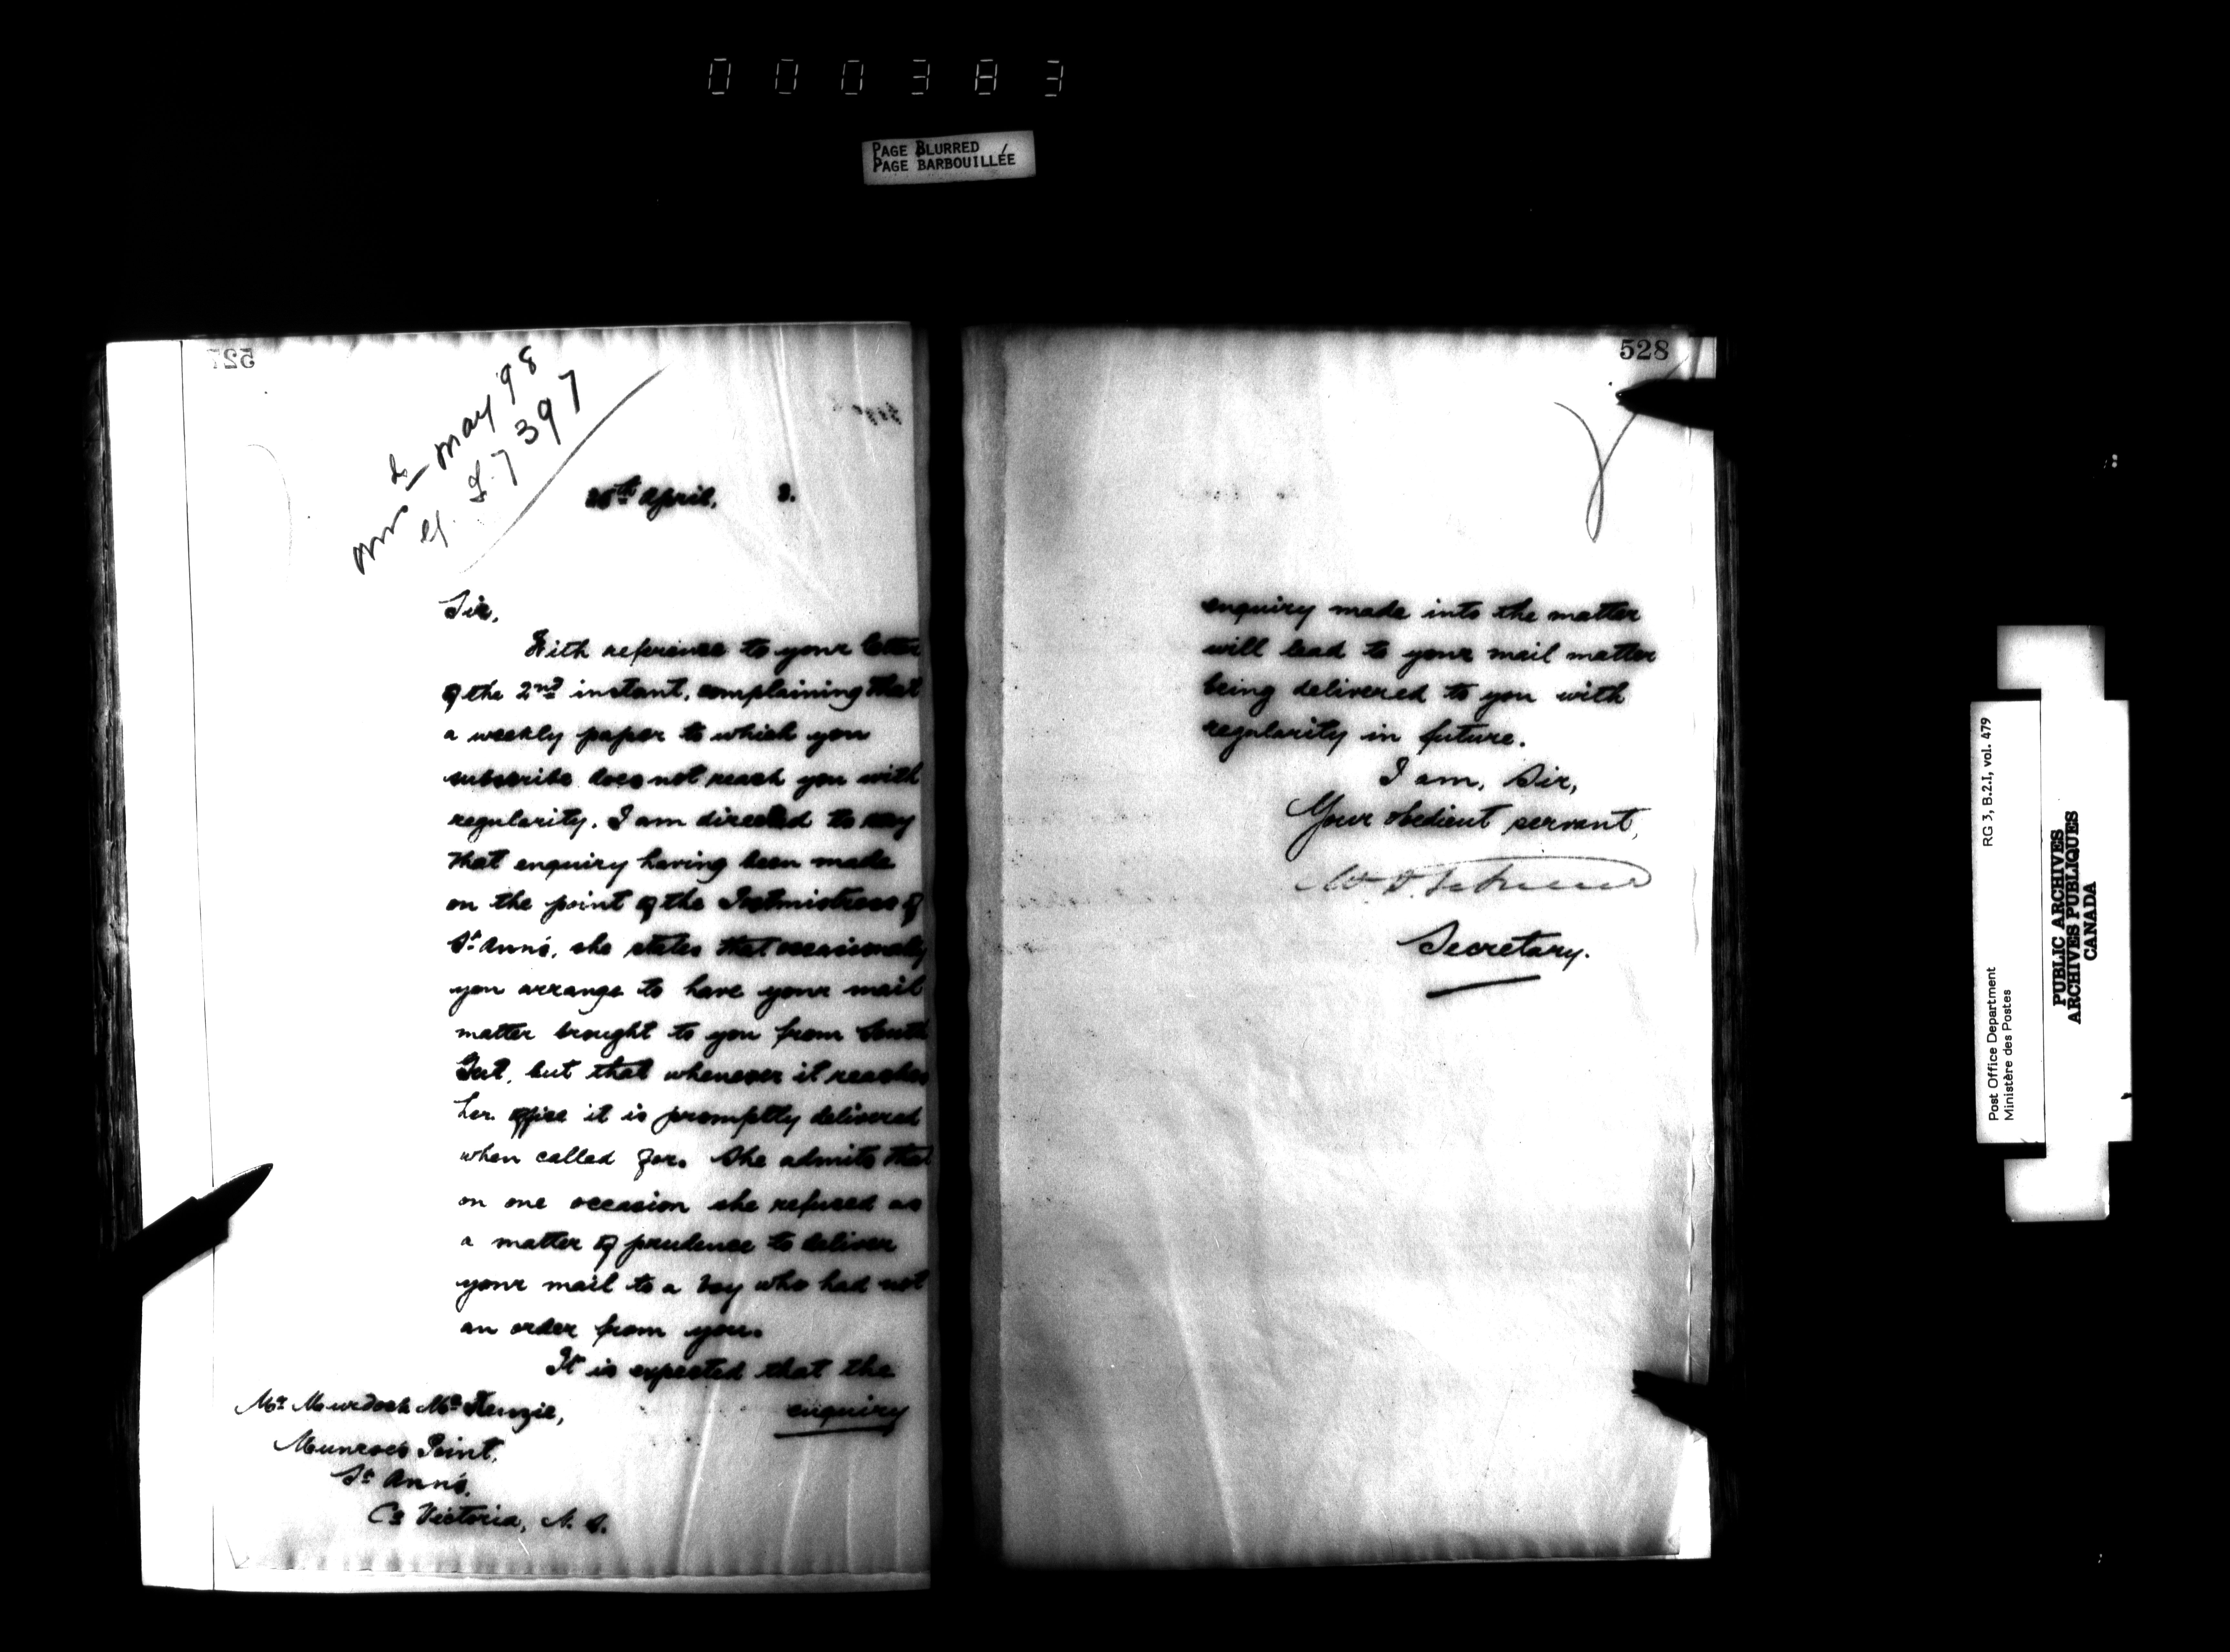 000383
PAGE BLURRED
PAGE BARBOUILLÉE
527
May 98
397
April, 8.
Sir,
With reference to your letter
of the 2nd instant, complaining that
a weekly paper to which you
subscribe does not reach you with
regularity. I am directed to say
that enquiry having been made
on the point of the Postmistress of
St. Ann's, she states that occasionally
you arrange to have your mail
matter brought to you from South
Gut, but that whenever it reaches
her office it is promptly delivered
when called for. She admits that
on one occasion she refused as
a matter of prudence to deliver
your mail to a boy who had not
an order from you.
It is expected that the
enquiry
Mr. Murdoch McKenzie,
Munroe's Point,
St. Ann's,
Co. Victoria, N.S.
528
enquiry made into the matter
will lead to your mail matter
being delivered to you with
regularity in future.
I am, Sir,
Your obedient servant,
Secretary.
RG 3, B.2.I, vol. 479
Post Office Department
Ministère des Postes
PUBLIC ARCHIVES
ARCHIVES PUBLIQUES
CANADA